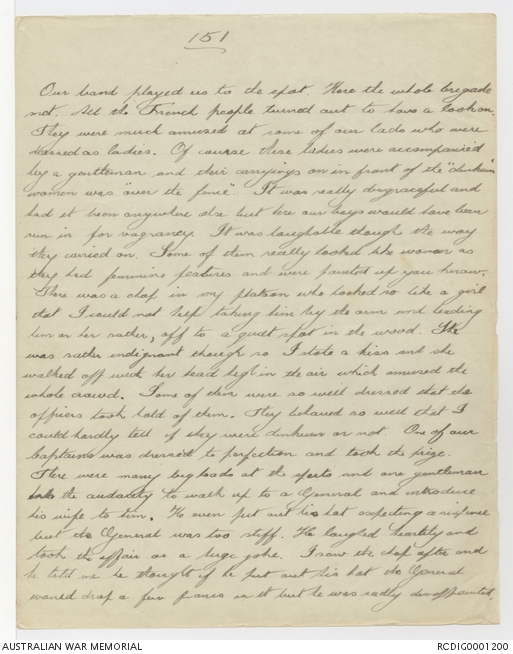 151
Our band played us to the spot. Here the whole brigade
met. All the French people turned out to have a look on.
They were much amused at some of our lads who were
dressed as ladies. Of course these ladies were accompanied
by a gentleman and their carryings on in front of the "dinkum"
women was "over the fence". It was really disgraceful and
had it been anywhere else but here our boys would have been
run in for vagrancy. It was laughable though the way
they carried on. Some of them really looked like women as
they had feminine features and were painted up you know.
There was a chap in my platoon who looked so like a girl
that I could not help taking him by the arm and leading
him or her rather, off to a quiet spot in the wood. She
was rather indignant though so I stole a kiss and she
walked off with her head high in the air which amused the
whole crowd. Some of them were so well dressed that the
officers took hold of them. They behaved so well that I
could hardly tell if they were dinkum or not. One of our
Captains was dressed to perfection and took the prize.
There were many big heads at the sports and one gentleman
the audacity to walk up to a General and introduce
his wife to him. He even put out his hat expecting a response
but the General was too stiff. He laughed heartily and
took the affair as a huge joke. I saw the chap after and
he told me he thought if he put out his hat the General
would drop a few francs in it but he was sadly disappointed.
AUSTRALIAN WAR MEMORIAL
RCDIG0001200